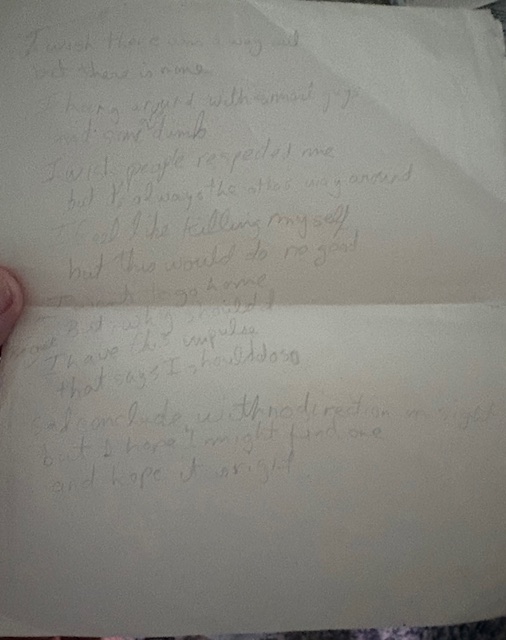 I wish there was a way out
but there is none
I hang around with smart guys
but I'm dumb
I wish people respected me
but it's always the other way around
I feel like killing myself
but this would do no good
I want to go home
But, why should I
I have this impulse
that says I should do so
So I conclude with no direction in sight
but I hope I might find one
and hope it is right.